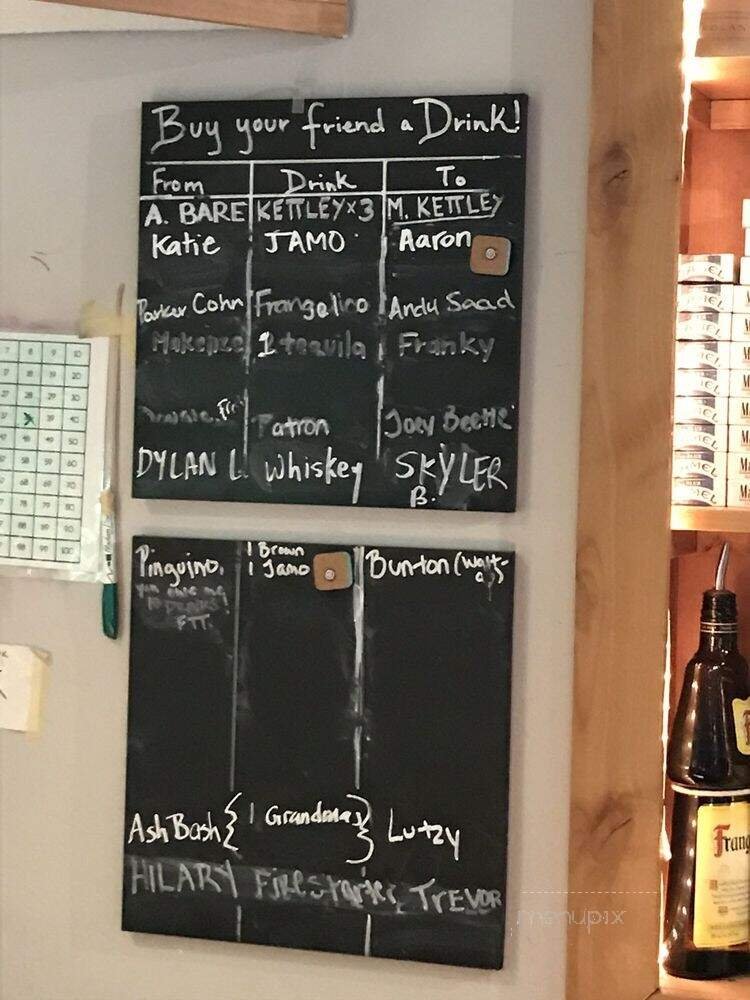 Buy your friend a Drink!
From Drink To
A. BARE KETTLEY x 3 M. KETTLEY
Katie JAMO Aaron
Parker Cohn Frangelino Andy Saad
Makenze 1 tequila Franky
Patron Joey Beeme
DYLAN L. Whiskey SKYLER
B.
Pinguino. 1 Brown Bunton (Walt-
1 Jamo a)
you owe me
10 DRINKS!
FTT.
AshBash { 1 Grandmas } Lutzy
HILARY Firestarter TREVOR
menupix
Frang